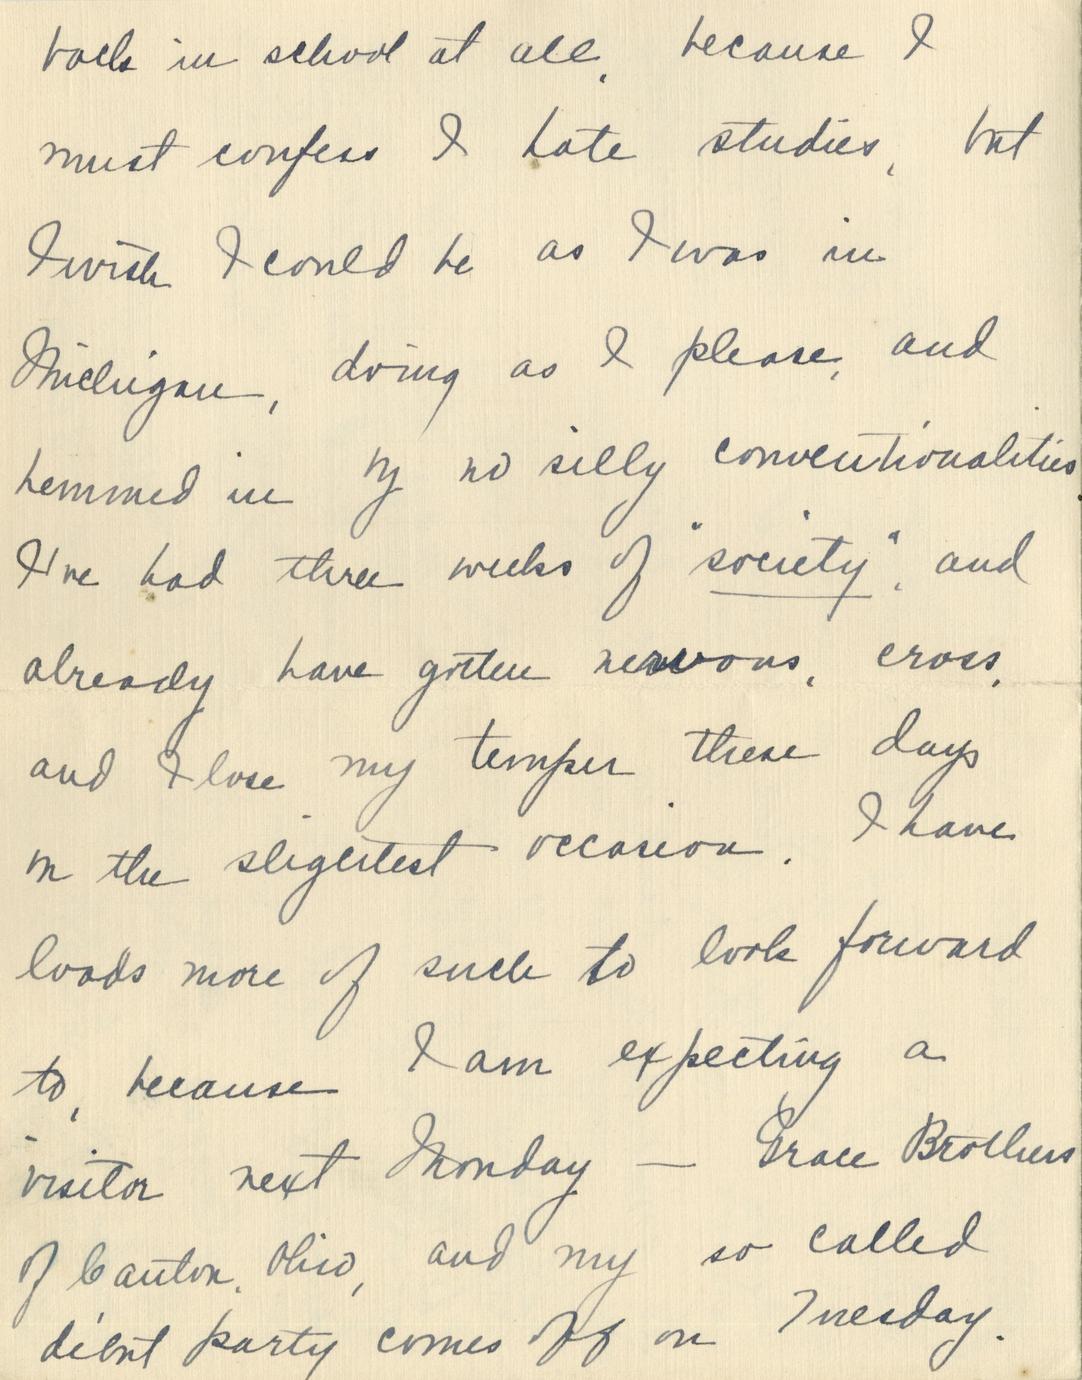 back in school at all, because I
must confess I hate studies, but
I wish I could be as I was in
Michigan, doing as I please, and
hemmed in by no silly conventionalities.
I've had three weeks of "society", and
already have gotten nervous, cross,
and I lose my temper these days
on the slightest occasion. I have
loads more of such to look forward
to, because I am expecting a
visitor next Monday — Grace Brothers
of Canton, Ohio, and my so called
début party comes off on Tuesday.